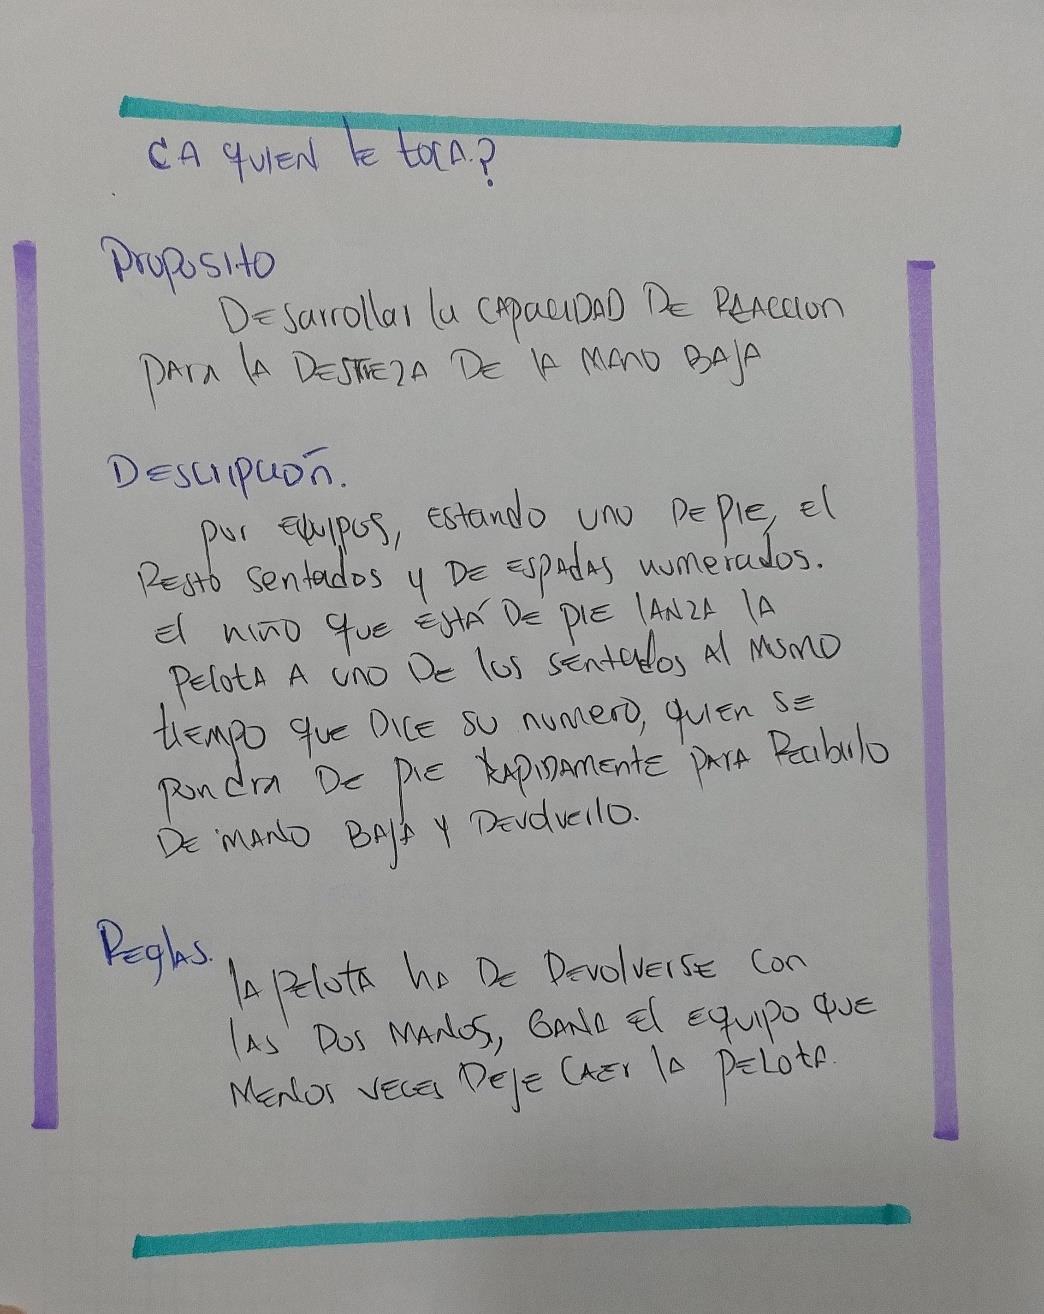 ¿A quien te toca?
Proposito
Desarrollar la capacidad de reaccion
para la destreza de la mano baja
Descripción.
por equipos, estando uno de pie, el
Resto sentados y de espadas numerados.
El niño que está de pie lanza la
pelota a uno de los sentados al mismo
tiempo que dice su numero, quien se
pondra de pie rapidamente para recibirlo
de mano baja y devolverlo.
Reglas.
la pelota ha de devolverse con
las dos manos, gana el equipo que
menos veces deje caer la pelota.